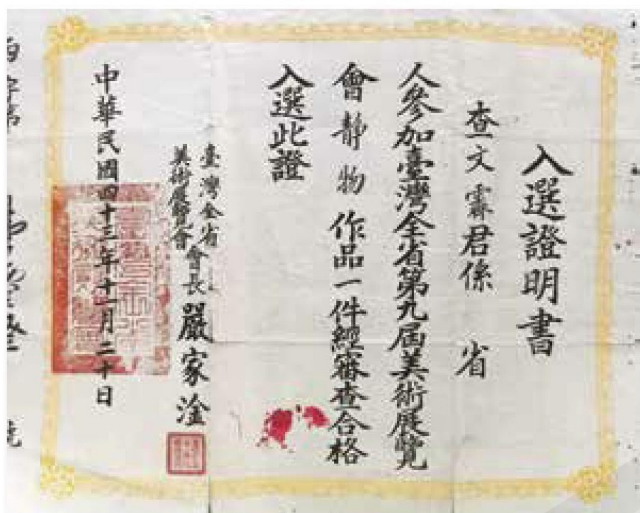 入選證明書
查文霖君係　省
人參加臺灣全省第九屆美術展覽
會靜物作品一件經審查合格
入選此證
臺灣全省
美術展覽會會長嚴家淦
中華民國四十三年十一月二十日